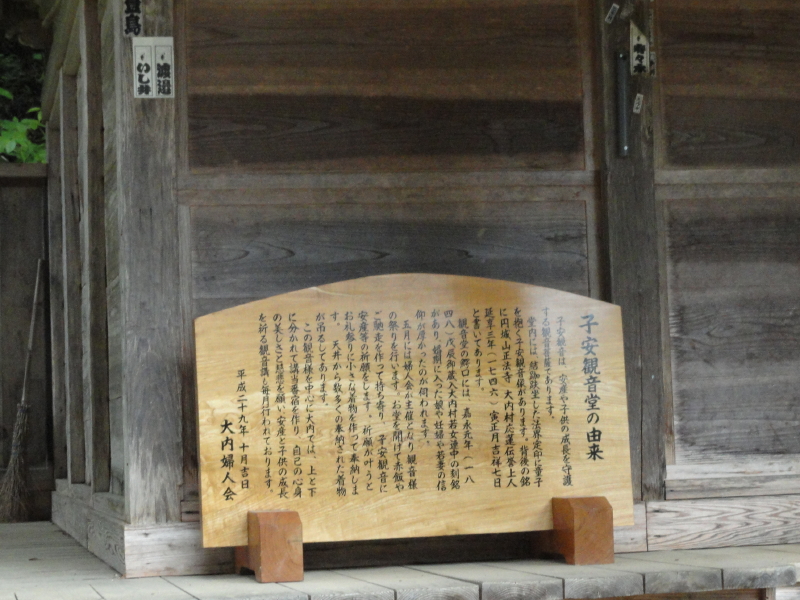 子安観音堂の由来
子安観音は、安産や子供の成長を守護
する観音菩薩であります。
堂内には、結跏趺坐した法界定印に童子
を抱く子安観音様があります。背後の銘
に円城山正法寺 大内村広蓮伝誉上人
延享三年(一七四六) 寅正月吉祥七日
と書いてあります。
観音堂の鰐口には、嘉永元年(一八
四八)戊辰御蔵入大内村若女連中の刻銘
があり、結開に入った娘や妊婦や若妻の信
仰が厚かったのが伺われます。
五月には婦人会が主催となり、観音様
の祭りを行います。お堂を開けて赤飯や
ご馳走を作って持ち寄り、子安観音に
安産等の祈願をします。祈願が叶うと
お礼参りに小さな着物を作って奉納しま
す。天井から数多くの奉納された着物
が吊るしてあります。
この観音様を中心に大内では、上と下
に分かれて講当番宿を作り、自己の心身
の美しさと慈悲を願い安産と子供の成長
を祈る観音講も毎月行われております。
平成二十九年 十月吉日
大内婦人会
渡辺
いし井